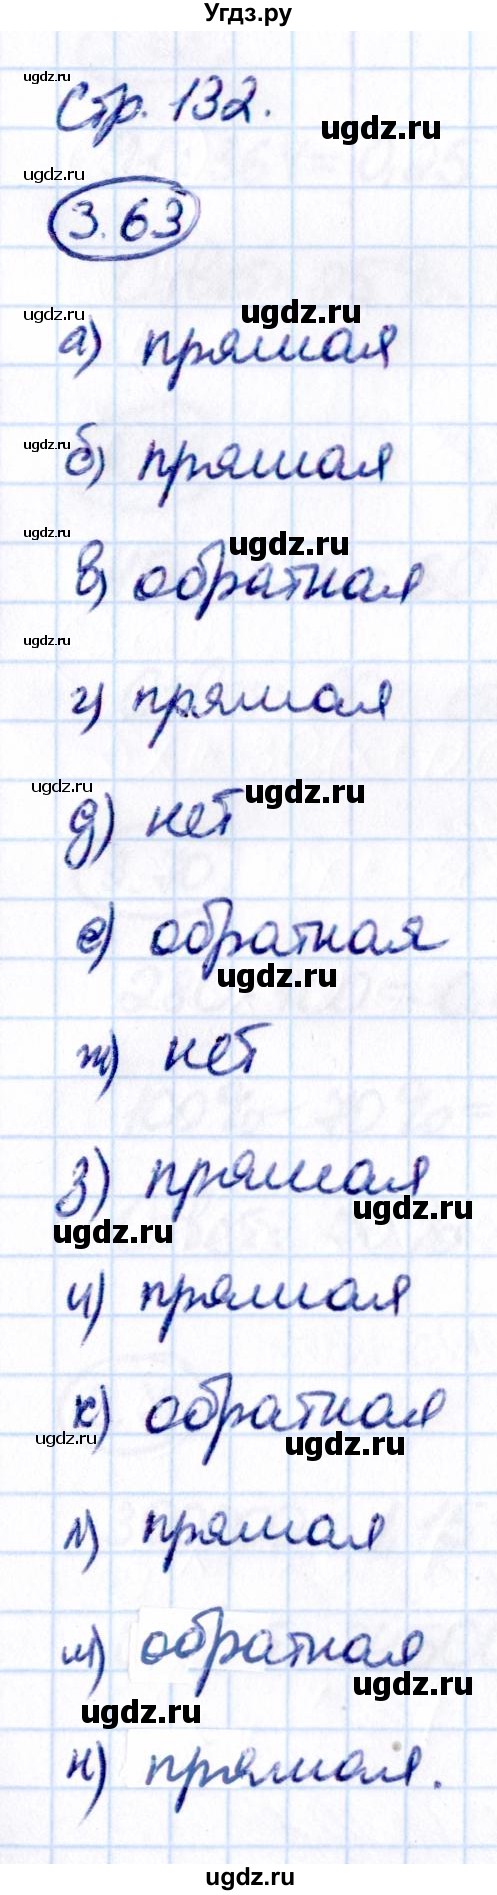 Угдз.ру
ugdz.ru
Стр. 132.
ugdz.ru
ugdz.ru
3.63
ugdz.ru
ugdz.ru
а) прямая
ugdz.ru
б) прямая
ugdz.ru
ugdz.ru
в) обратная
ugdz.ru
г) прямая
ugdz.ru
ugdz.ru
д) нет
е) обратная
ugdz.ru
ж) нет
з) прямая
ugdz.ru
ugdz.ru
и) прямая
к) обратная
ugdz.ru
ugdz.ru
л) прямая
м) обратная
ugdz.ru
ugdz.ru
н) прямая.
ugdz.ru